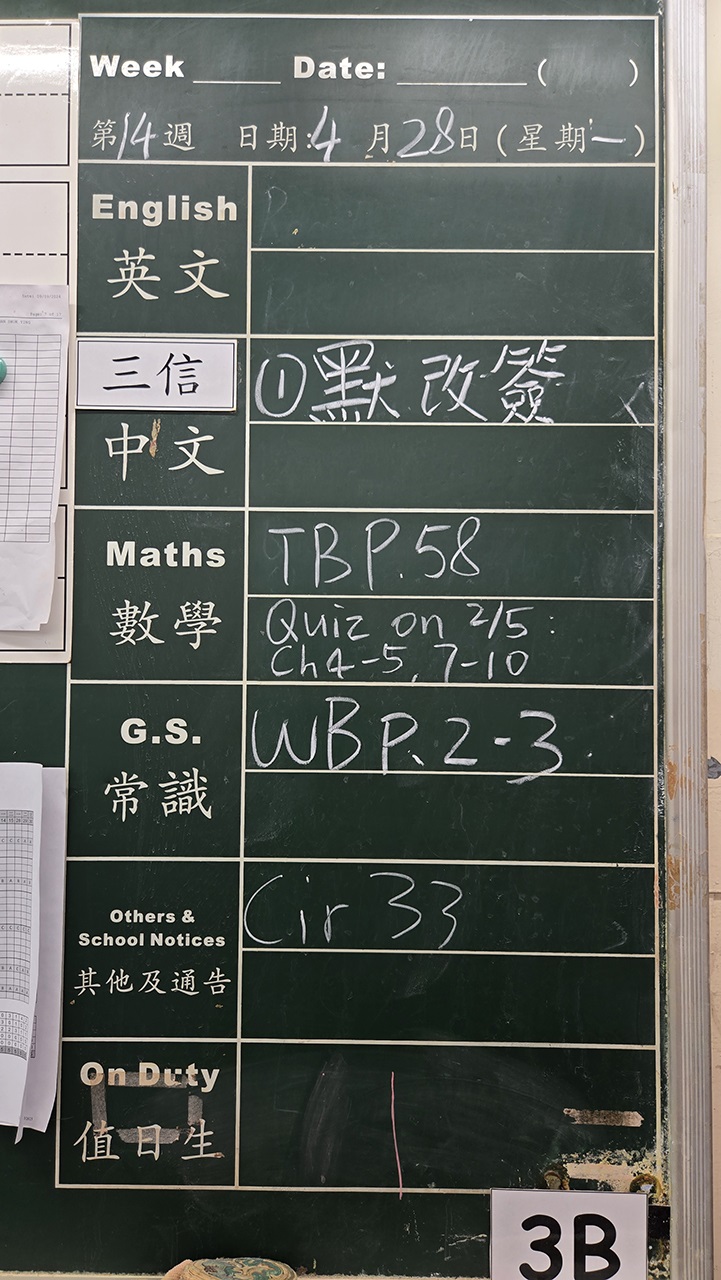 Week ____ Date: ____ ( )
第14週 日期:4月28日(星期一)
English
英文
三信
中文
①默改簽
Maths
數學
TBP.58
Quiz on 2/5:
Ch4-5, 7-10
G.S.
常識
WBP.2-3
Others &
School Notices
其他及通告
Cir 33
On Duty
值日生
3B